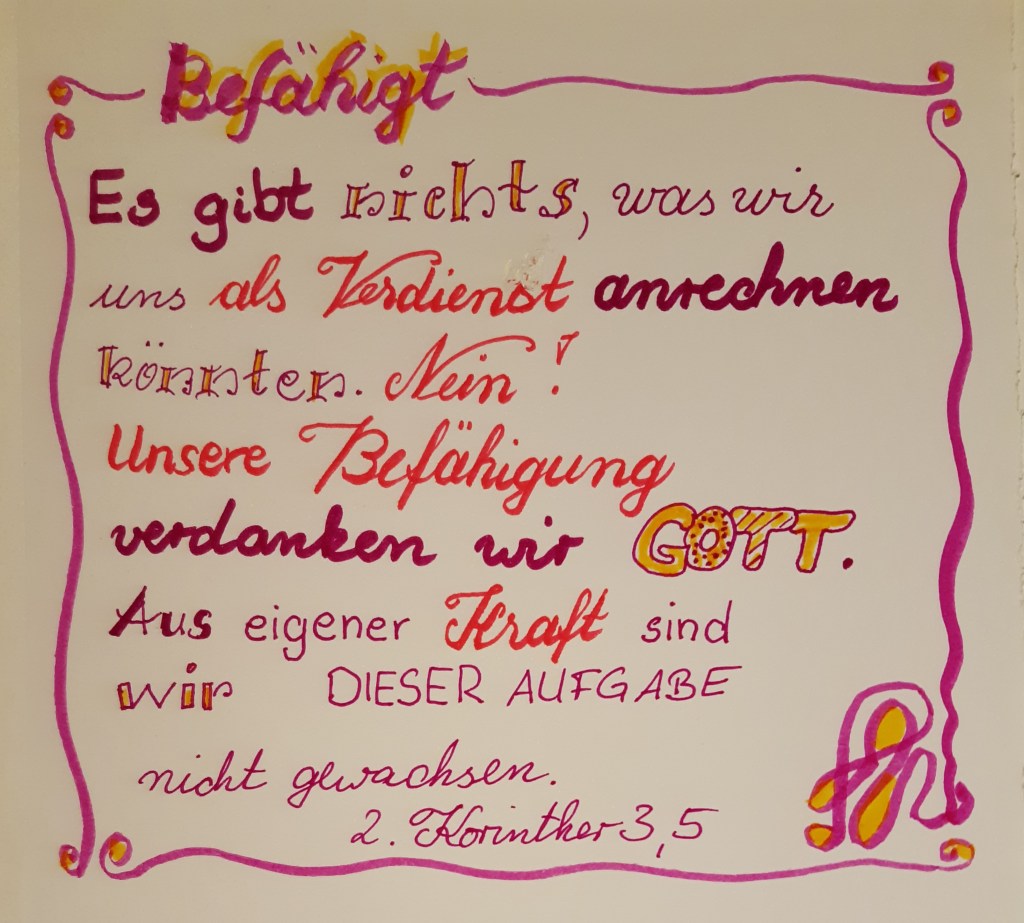 Befähigt
Es gibt nichts, was wir
uns als Verdienst anrechnen
könnten. Nein!
Unsere Befähigung
verdanken wir GOTT.
Aus eigener Kraft sind
wir DIESER AUFGABE
nicht gewachsen.
2. Korinther 3,5